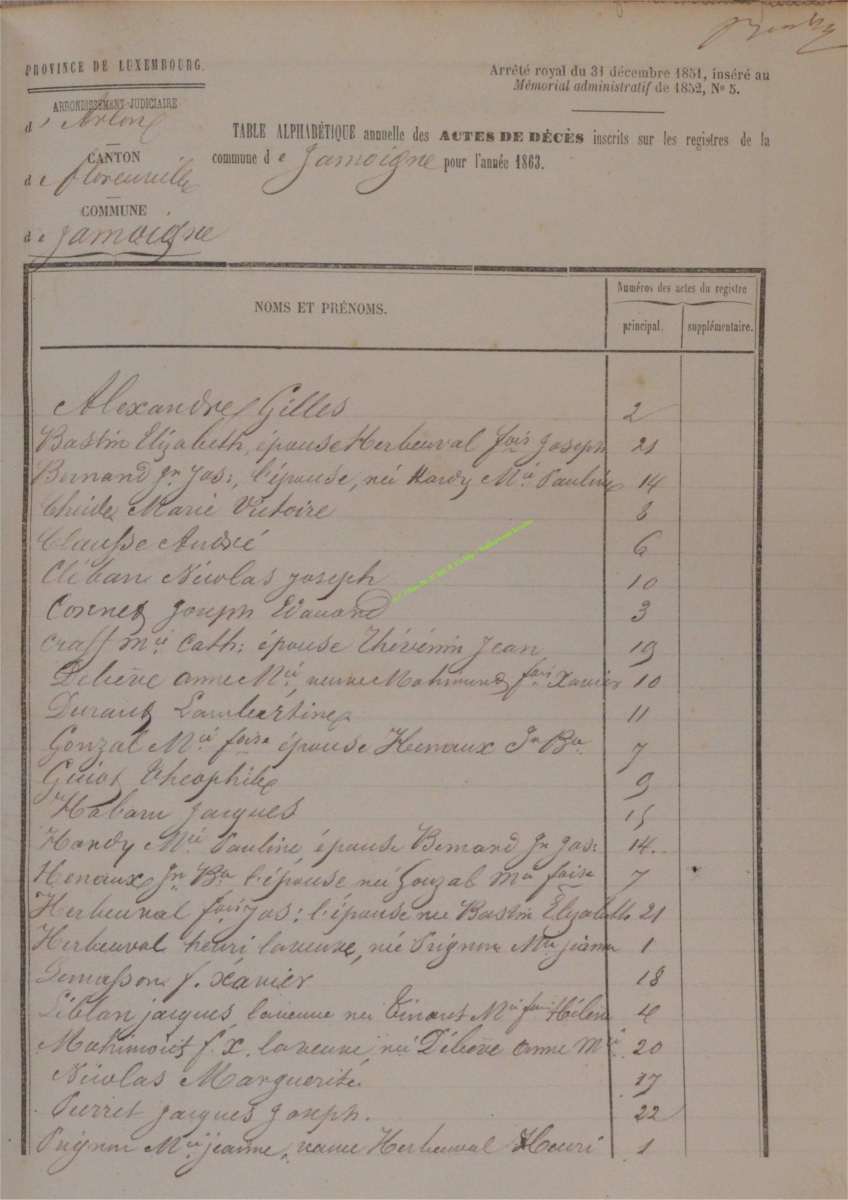 PROVINCE DE LUXEMBOURG.
ARRONDISSEMENT JUDICIAIRE
d' Arlon
CANTON
de florenville
COMMUNE
de Jamoigne
Arrêté royal du 31 décembre 1851, inséré au
Mémorial administratif de 1852, No 5.
TABLE ALPHABÉTIQUE annuelle des ACTES DE DÉCÈS inscrits sur les registres de la
commune de Jamoigne pour l'année 1863.
NOMS ET PRÉNOMS.
Numéros des actes du registre
principal. supplémentaire.
Alexandre Gilles 2
Bastin Elizabeth, épouse Herbeuval fois Joseph 21
Bernard Jn Jos:, l'épouse, née Hardy Mie Pauline 14
Marie Victoire
Clausse André 6
Cléban Nicolas Joseph 10
Cornet Joseph Edouard 3
Craff Mie Cath: épouse Thévénin Jean 19
Deliève anne Mie, veuve fois Xavier 10
Durant Lambertine 11
Gonzal Mie foise épouse Henaux Jn Bte 7
Guiot Théophile 9
Habaru Jacques 15
Hardy Mie Pauline épouse Bernard Jn Jos: 14
Henaux Jn Bte l'épouse née Gonzal Mie foise 7
Herbeuval fois Jos: l'épouse née Bastin Elizabeth 21
Herbeuval henri la veuve, née Prignon Mie jeanne 1
Lemasson f. xavier 18
Léblan jacques la veuve née Tinant Mie foise Hélène 4
Mathimont f. x. la veuve née Déliève anne Mie 20
Nicolas Marguerite 17
Pierret Jacques Joseph. 22
Prignon Mie jeanne, veuve Herbeuval Henri 1